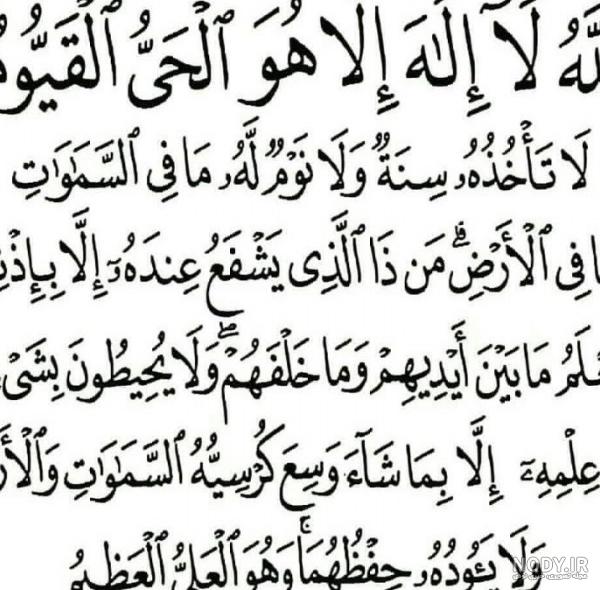 لَآ إِلَٰهَ إِلَّا هُوَ ٱلْحَىُّ ٱلْقَيُّومُ
لَا تَأْخُذُهُۥ سِنَةٌ وَلَا نَوْمٌ لَّهُۥ مَا فِى ٱلسَّمَٰوَٰتِ
فِى ٱلْأَرْضِ ۗ مَن ذَا ٱلَّذِى يَشْفَعُ عِندَهُۥٓ إِلَّا بِإِذْنِ
مَا بَيْنَ أَيْدِيهِمْ وَمَا خَلْفَهُمْ ۖ وَلَا يُحِيطُونَ بِشَىْءٍ
عِلْمِهِۦٓ إِلَّا بِمَا شَآءَ وَسِعَ كُرْسِيُّهُ ٱلسَّمَٰوَٰتِ وَٱلْأَر
وَلَا يَـُٔودُهُۥ حِفْظُهُمَا ۚ وَهُوَ ٱلْعَلِىُّ ٱلْعَظِيمُ
NODY.IR